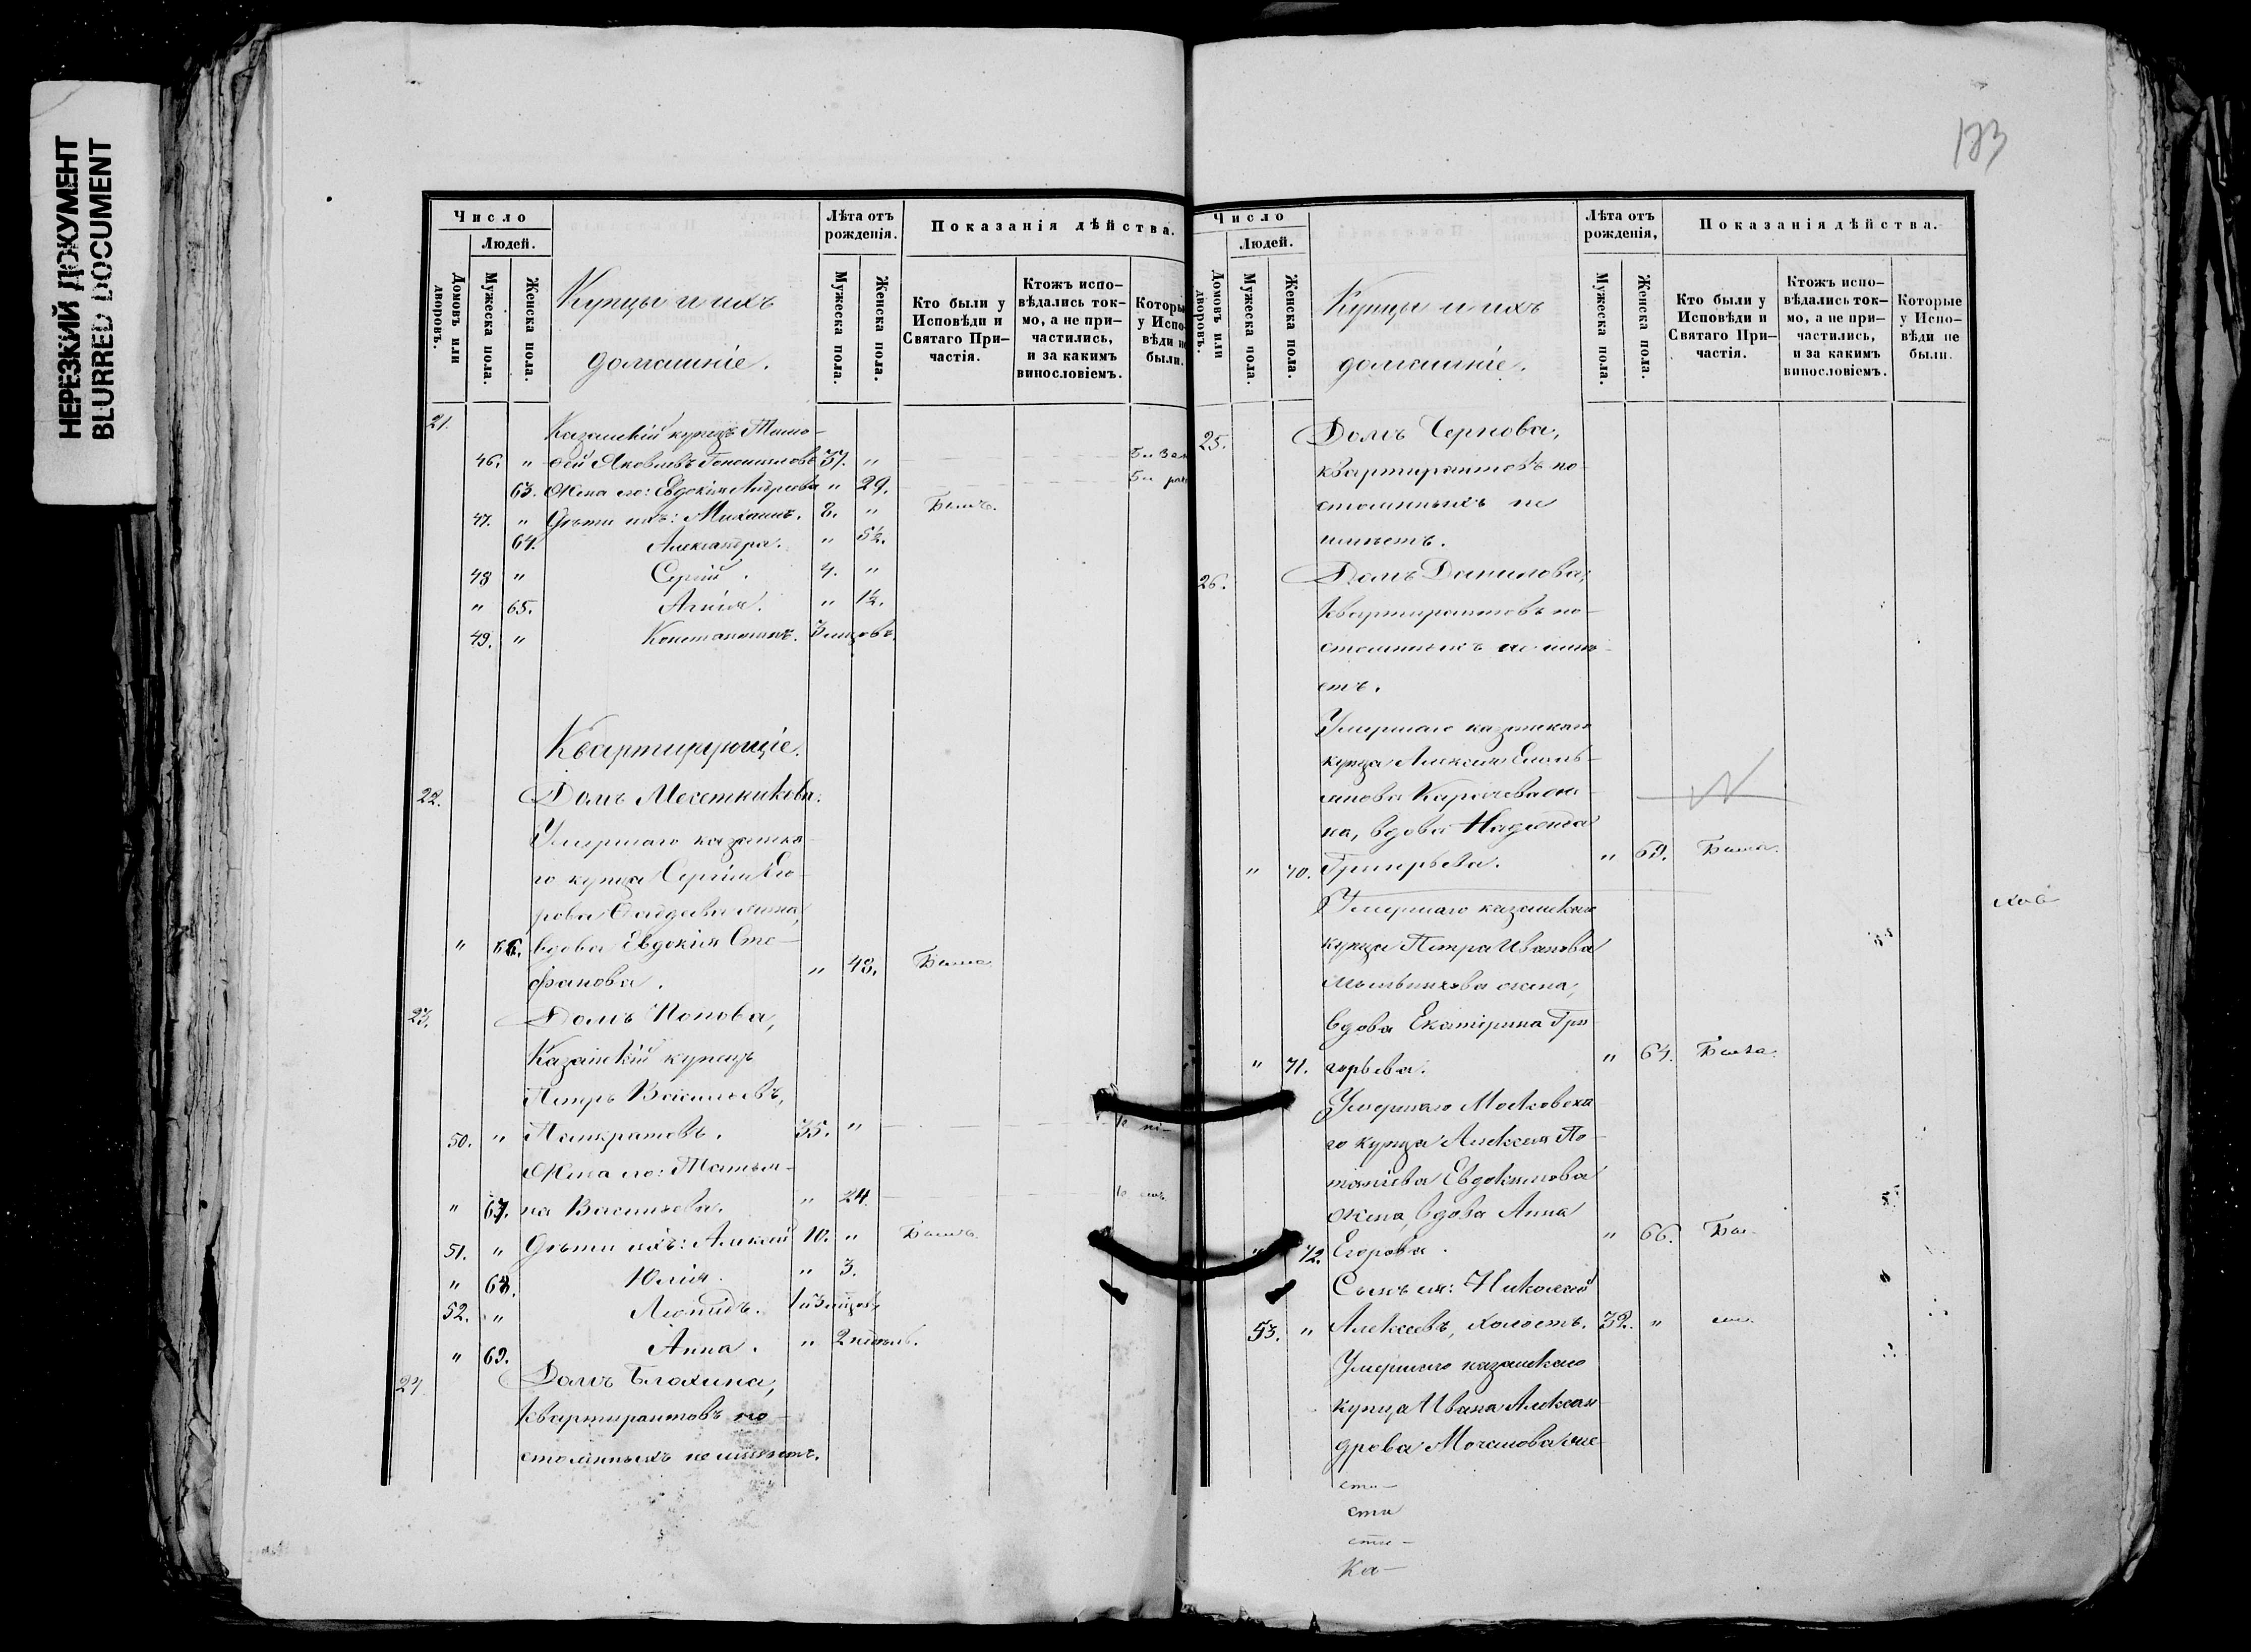 НЕРЕЗКИЙ ДОКУМЕНТ
BLURRED DOCUMENT
Число
Людей.
Домовъ или дворовъ.
Мужеска пола.
Женска пола.
Купцы и ихъ
домашніе.
Лѣта отъ рожденія.
Мужеска пола.
Женска пола.
Показанія дѣйства.
Кто были у Исповѣди и Святаго Причастія.
Ктожъ исповѣдались токмо, а не причастились, и за какимъ винословіемъ.
Которы у Испо- вѣди н были.
21. Казанскій купецъ Тимо-
46. " фей Яковлевъ 37. "
63. Жена его: Евдокія Андреева " 29.
47. " Дѣти ихъ: Михаилъ. 8. " Былъ.
64. Александра. " 5½.
48 " Сергій. 4. "
" 65. Агнія. " 1½.
49. " Константинъ. 3 мѣсцовъ
Квартирующіе.
22. Домъ Месетникова:
Умершаго казанска-
го купца Сергія Его-
рова жена,
" 66. вдова Евдокія Сте-
фанова. " 43. Была
23. Домъ Попова,
Казанскій купецъ
Петръ Васильевъ,
50. " Панкратовъ. 35. "
Жена его: Татья-
" 67. на Васильева. " 24.
51. " Дѣти ихъ: Алексій 10. " Былъ.
" 68. Юлія. " 3.
52. " Леонидъ.
" 69. Анна. " 2 недѣль.
24. Домъ Блохина,
Квартирантовъ по-
стоянныхъ не имѣетъ.
183
Число
Людей.
Домовъ или дворовъ.
Мужеска пола.
Женска пола.
Купцы и ихъ
домашніе.
Лѣта отъ рожденія,
Мужеска пола.
Женска пола.
Показанія дѣйства.
Кто были у Исповѣди и Святаго Причастія.
Ктожъ исповѣдались токмо, а не причастились, и за какимъ винословіемъ.
Которые у Исповѣди не были.
25. Домъ Чернова,
квартирантовъ по-
стоянныхъ не
имѣетъ.
26. Домъ Данилова;
Квартирантовъ по-
стоянныхъ не имѣ-
етъ.
Умершаго казанскаго
купца Алексія Емель-
янова Карачева же-
на, вдова Надежда
" 70. Григорьева. " 69. Была.
Умершаго казанскаго
купца Петра Иванова
Мыльникова жена,
вдова Екатерина Гри
" 71. горьева. " 64. Была.
Умершаго Московска
го купца Алексія По-
тапіева Евдокимова
жена, вдова Анна
" 72. Егорова. " 66. Бы
Сынъ ея: Николай
53. " Алексеевъ, холостъ. 32. "
Умершаго казанскаго
купца Ивана Алексан
дрова Мочалова же-
Ка-